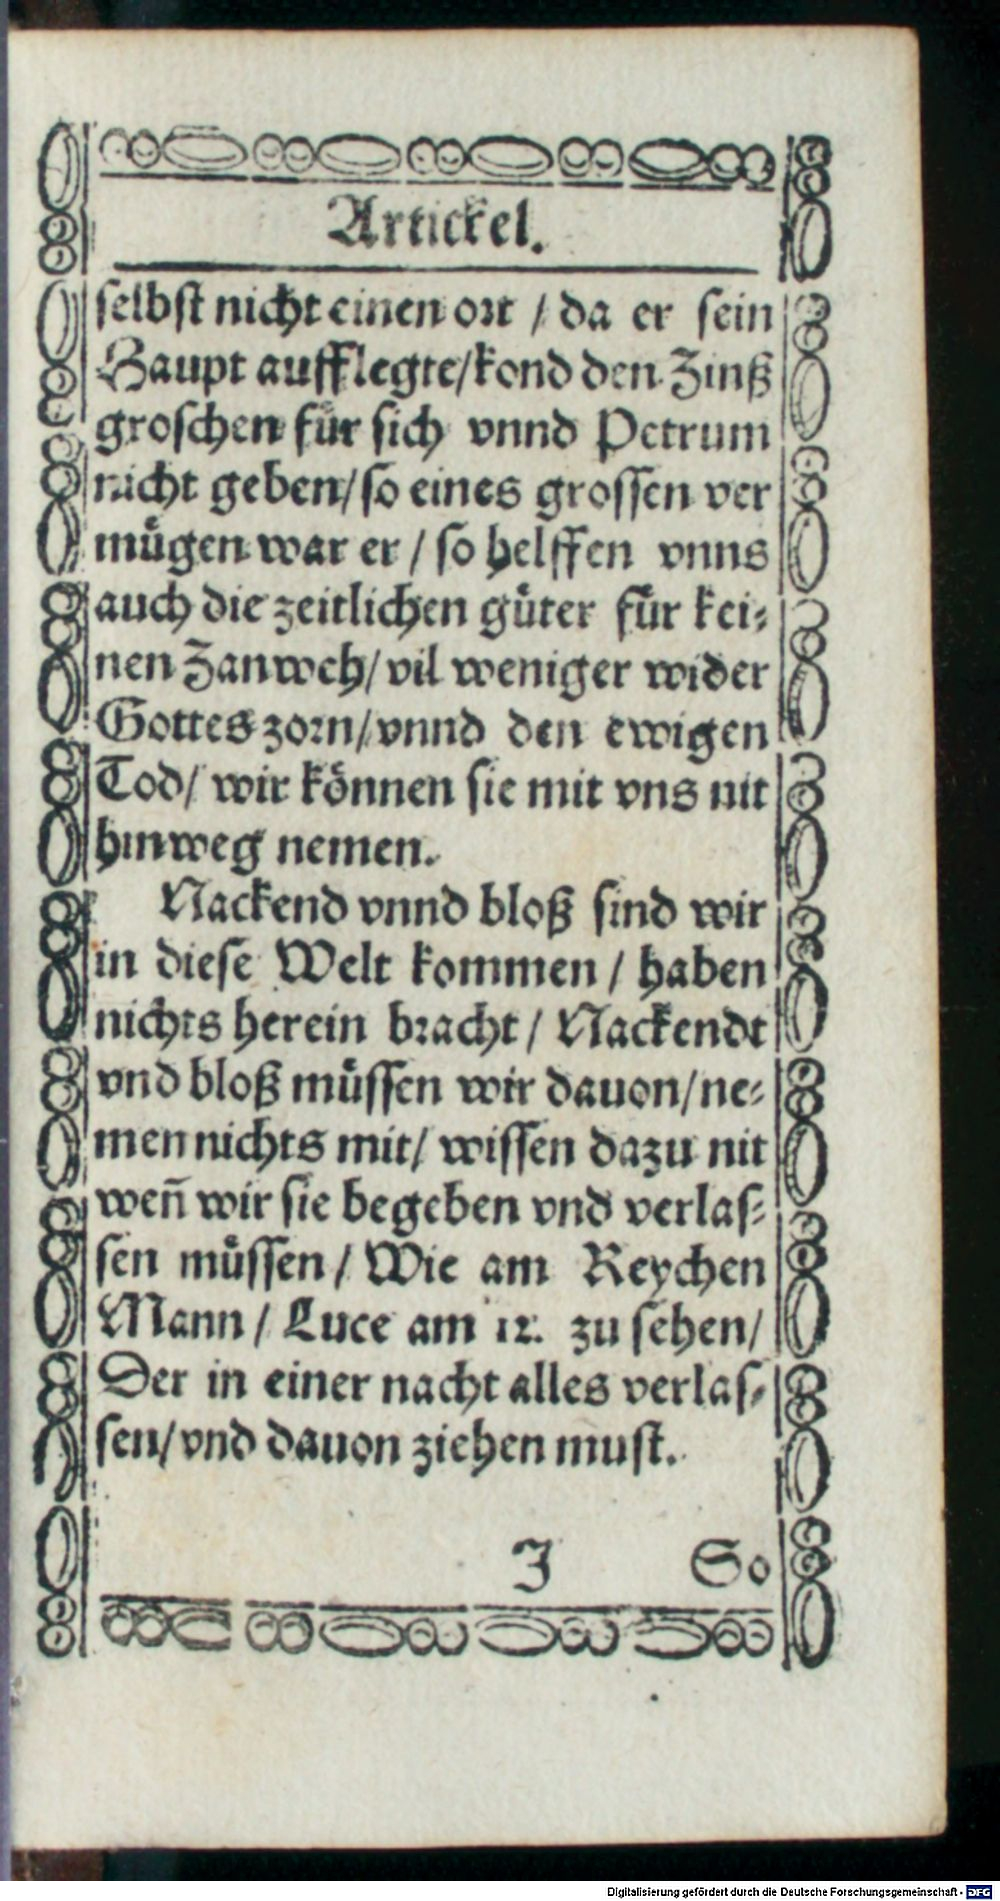 Artickel.
selbst nicht einen ort / da er sein
Haupt aufflegte/kond den Zinß
groschen für sich vnnd Petrum
nicht geben/so eines grossen ver
mügen war er / so helffen vnns
auch die zeitlichen güter für kei-
nen Zanweh/vil weniger wider
Gottes zorn/vnnd den ewigen
Tod/ wir können sie mit vns nit
hinweg nemen.
Nackend vnnd bloß sind wir
in diese Welt kommen / haben
nichts herein bracht / Nackendt
vnd bloß müssen wir dauon/ne-
men nichts mit/ wissen dazu nit
wen̄ wir sie begeben vnd verlas-
sen müssen / Wie am Reychen
Mann / Luce am 12. zu sehen/
Der in einer nacht alles verlas-
sen/vnd dauon ziehen must.
J So
Digitalisierung gefördert durch die Deutsche Forschungsgemeinschaft - DFG